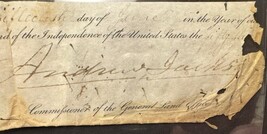 day of
in the Year of our
of the Independence of the United States the
Andrew Jacks
Commissioner of the General Land Office